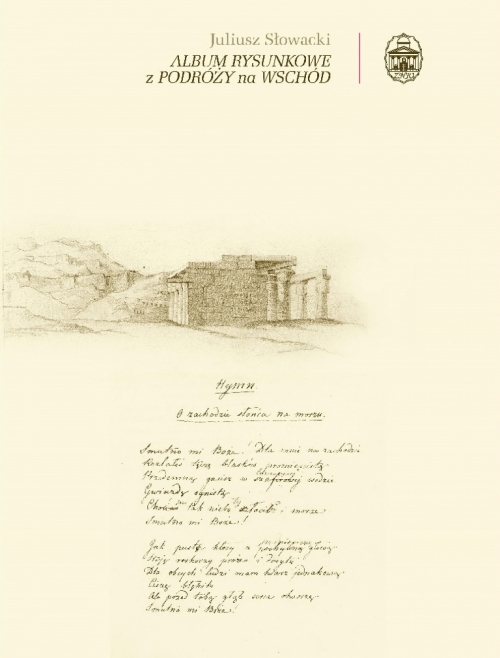 Juliusz Słowacki
ALBUM RYSUNKOWE
z PODRÓŻY na WSCHÓD
Hymn.
O zachodzie słońca na morzu.
Smutno mi Boże! Dla mnie na zachodzie
Rozlałeś tęczę blasków promienistą
Przedemną gasisz w lazurowej wodzie
Gwiazdę ognistą
Choć mi tak niebo ty złocisz i morze
Smutno mi Boże!
Jak puste kłosy z podniesioną głową
Stoję rozkoszy próżen i dosytu
Dla obcych ludzi mam twarz jednakową
Ciszę błękitu
Ale przed tobą głąb serca otworzę
Smutno mi Boże!